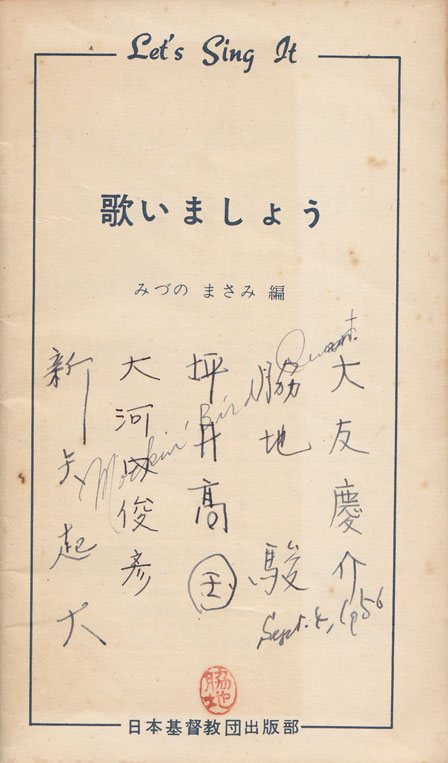 Let's Sing It
歌いましょう
みづの まさみ 編
Mockin' Bird Quart.
大友慶介
脇地 駿
坪井高国
大河田俊彦
新矢起大
Sept. 4, 1956
脇地
日本基督教団出版部